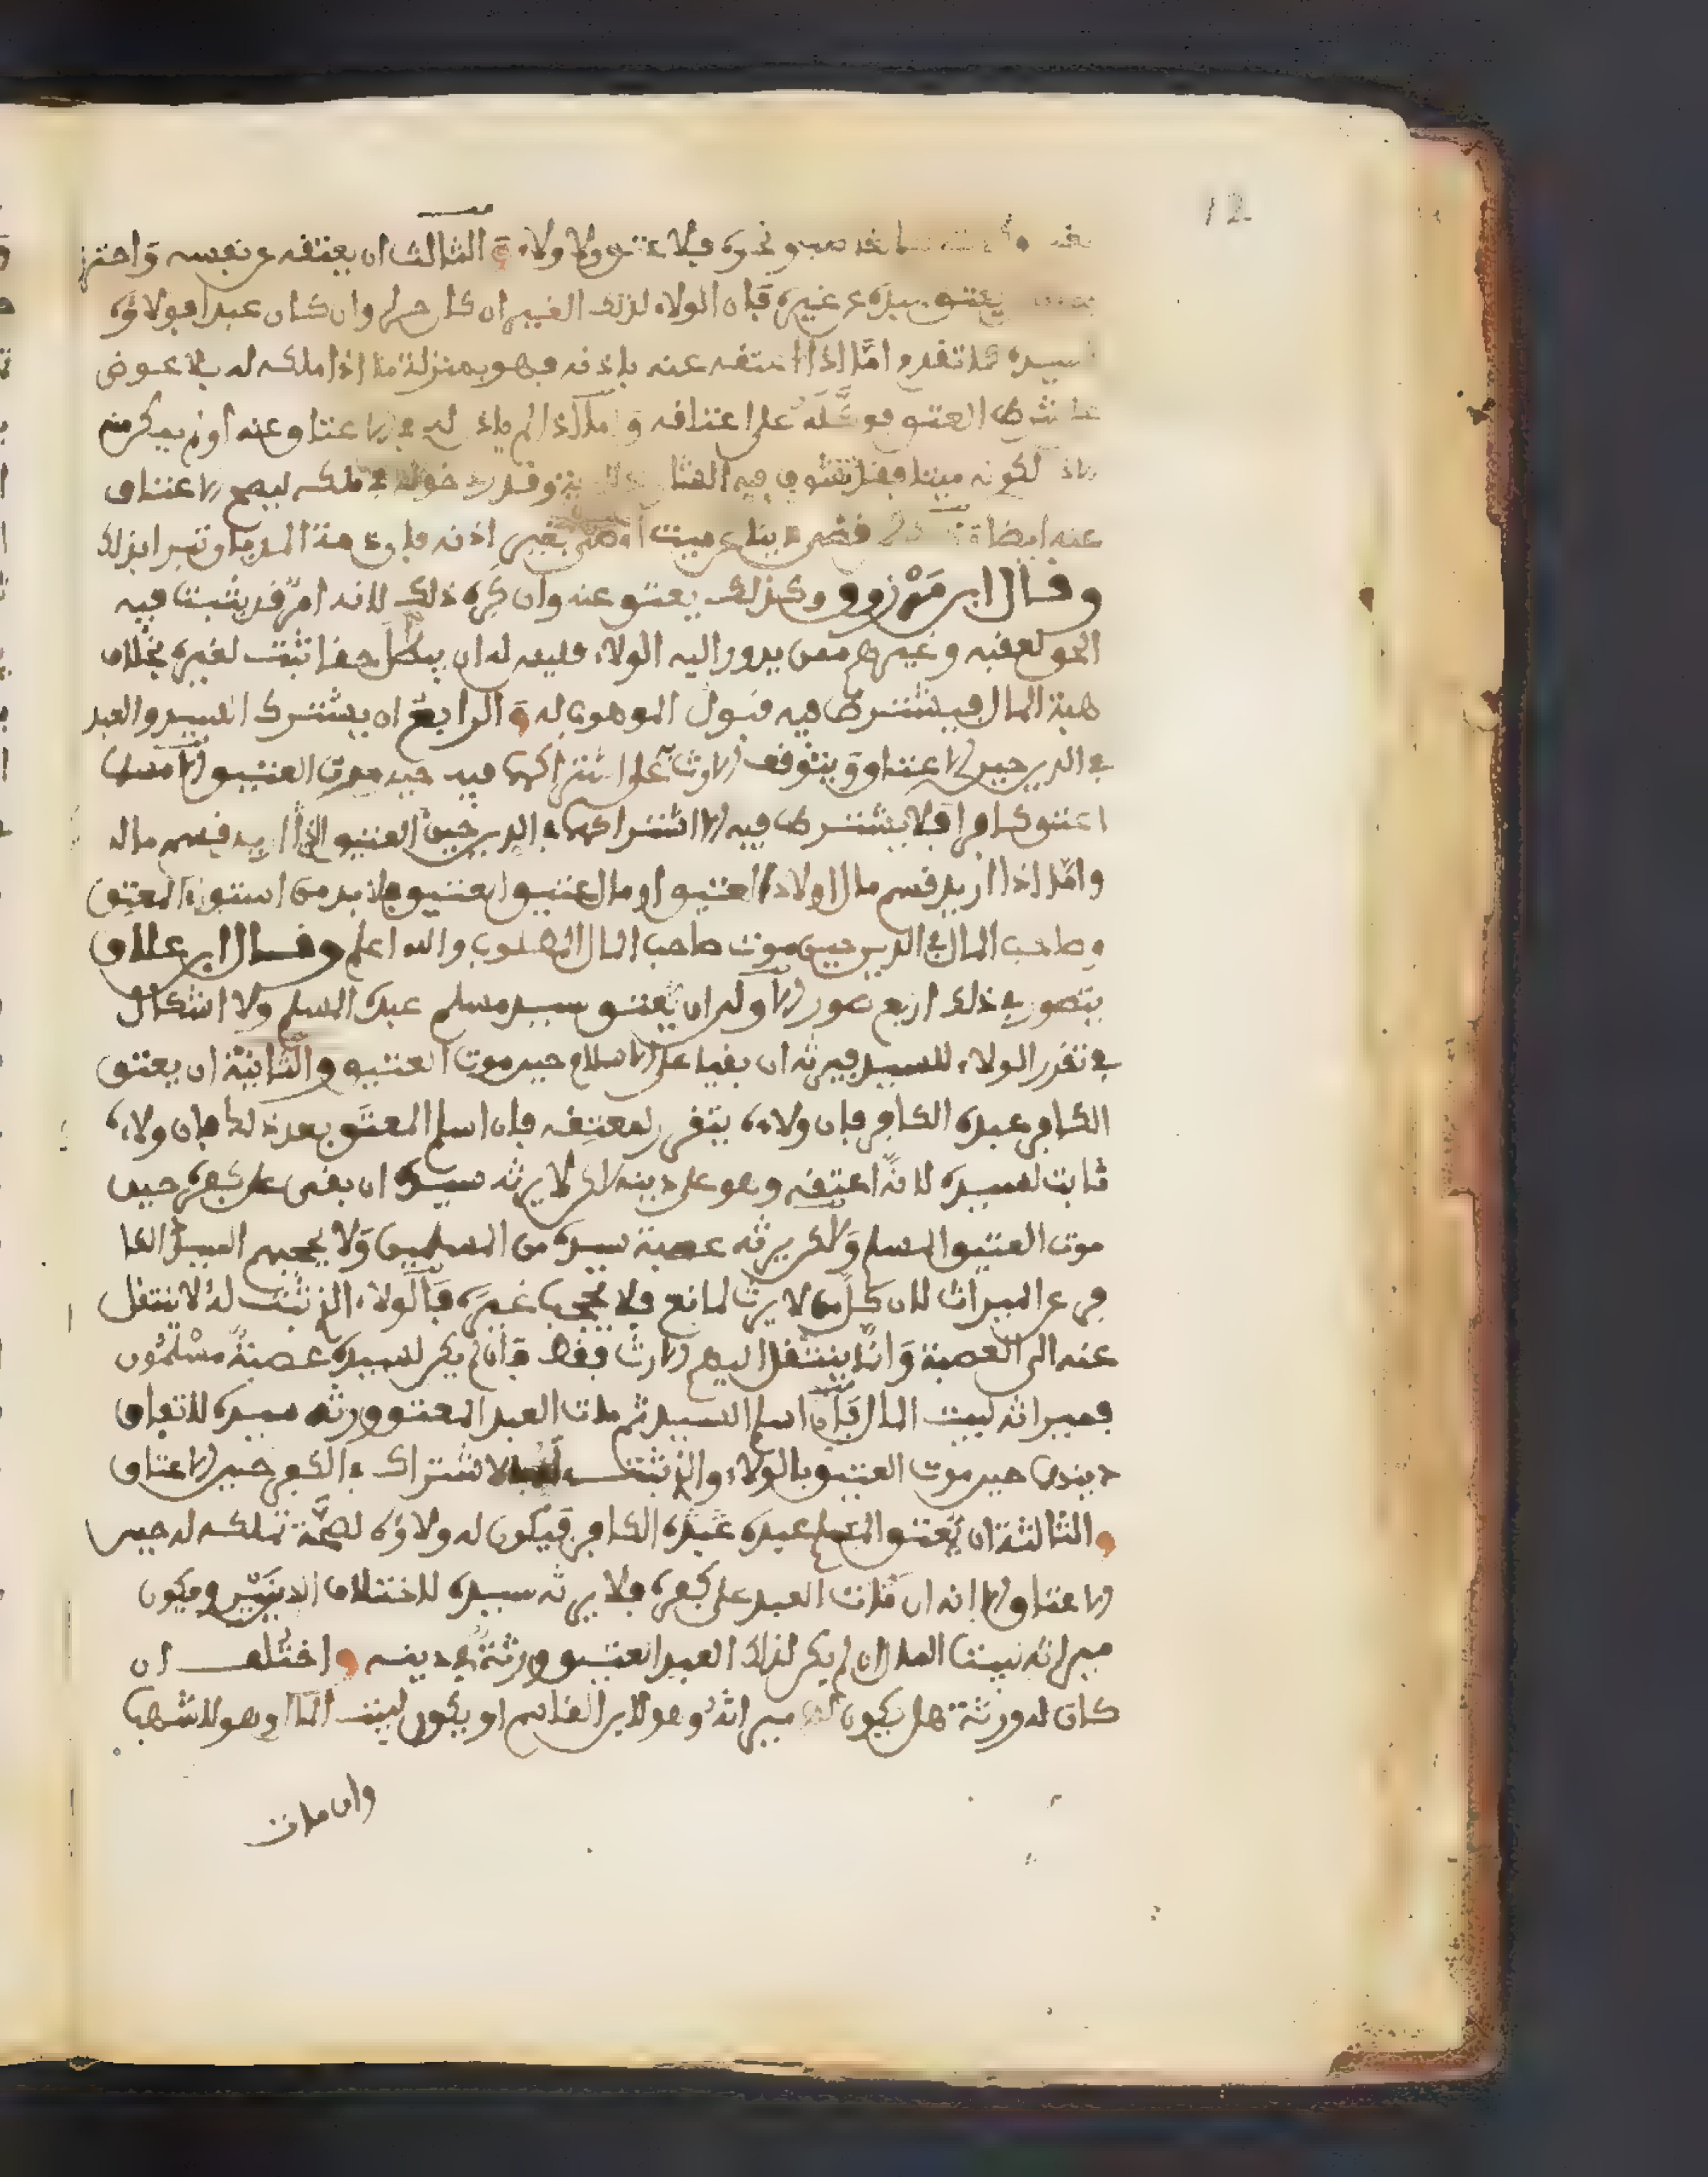 12
ونحوه فلا عتق ولا ولاء والثالث ان يعتقه عن نفسه واحترز
يعتق سيده عن غيره فان الولاء لذلك الغير ان كان حرا وان كان عبدا فولاؤه
لسيده كما تقدم اما اذا اعتقه عنه باذنه فهو بمنزلة ما اذا ملكه له بلا عوض
شرط العتق على اعتاقه و اذا لم ياذن له في الاعتاق عنه او لم يمكن منه
لكونه ميتا فيه وقدر دخوله في ملكه ليصح الاعتاق
عنه ايضا قضى دينا عن ميت بغير اذنه فان ذمة المديان تبرا بذلك
وقال ابن مرزوق وكذلك يعتق عنه وان كره ذلك لانه امر قد يثبت فيه
الحق لعقبه وغيرهم ممن يدور اليه الولاء فليس له ان يبطل حقا ثبت لغيره بخلاف
هبة المال فيشترط فيه قبول الموهوب له والرابع ان يشترك السيد والعبد
في الدين حين الاعتاق ويتوقف الارث على اشتراكهما فيه حين موت العتيق
اعتق كافرا فلا يشترط فيه الا اشتراكهما في الدين حين العتيق الذي اريد قسم ماله
واما اذا اريد قسم مال اولاد العتيق او مال عتيق العتيق فلا بد من استواء المعتق
وصاحب المال في الدين حين موت صاحب المال المطلوب والله اعلم وقال ابن علاق
يتصور في ذلك اربع صور الاولى ان يعتق سيد مسلم عبده المسلم ولا اشكال
في تقرر الولاء للسيد فيرثه ان بقيا على الاسلام حين موت العتيق والثانية ان يعتق
الكافر عبده الكافر فان ولاءه يتقرر لمعتقه فان اسلم المعتق بعد ذلك فان ولاءه
ثابت لسيده لانه اعتقه وهو على دينه لكن لا يرثه سيده ان بقى على كفره حين
موت العتيق المسلم ولكن يرثه عصبة سيده من المسلمين ولا يحجبهم السيد الكا
فر عن الميراث لان كل من لا يرث لمانع فلا يحجب غيره فالولاء الذي ثبت له لا ينتقل
عنه الى العصبة وانما ينتقل اليهم الارث فقط فان لم يكن لسيده عصبة مسلمون
فميراثه لبيت المال فان اسلم السيد ثم مات العبد المعتق ورثه سيده لاتفاق
دينهما حين موت العتيق بالولاء والذي ثبت له بالاشتراك في الكفر حين الاعتاق
والثالثة ان يعتق المسلم عبده الكافر فيكون له ولاؤه لصحة تملكه له حين
الاعتاق الا انه ان مات العبد على كفره فلا يرثه سيده لاختلاف الدينين ويكون
ميراثه لبيت المال ان لم يكن لذلك العبد العتيق ورثة في دينه واختلف ان
كان له ورثة هل يكون لهم ميراثه وهو لابن القاسم او يكون لبيت المال وهو لاشهب
وان مات